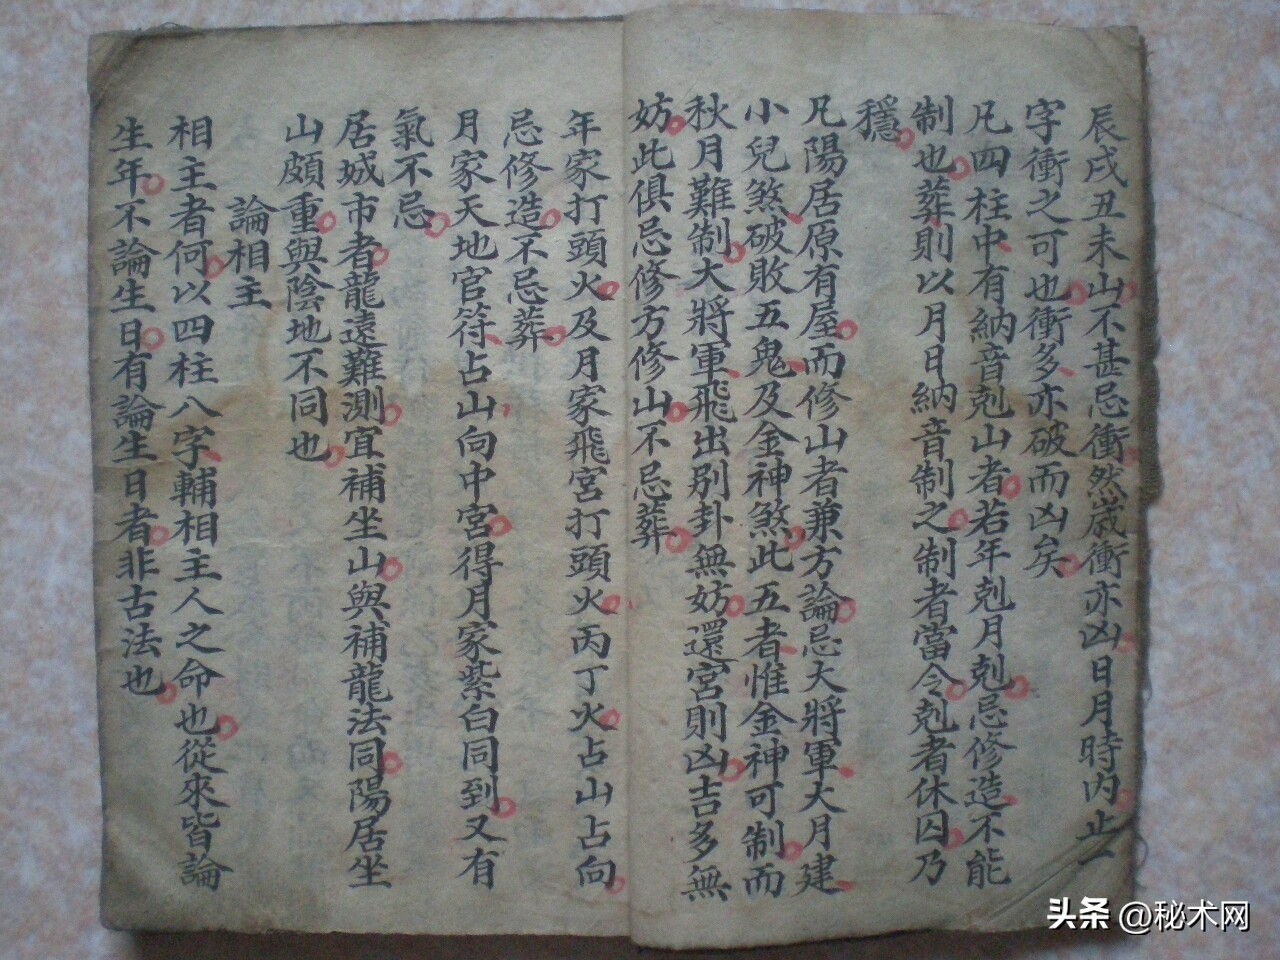 辰戌丑未山不甚忌衝然歲衝亦凶日月時内止一
字衝之可也衝多亦破而凶矣
凡四柱中有納音剋山者若年剋月剋忌修造不能
制也葬則以月日納音制之制者當令剋者休囚乃
穩
凡陽居原有屋而修山者兼方論忌大將軍大月建
小兒煞破敗五鬼及金神煞此五者惟金神可制而
秋月難制大將軍飛出别卦無妨還宮則凶吉多無
妨此俱忌修方修山不忌葬
年家打頭火及月家飛宮打頭火丙丁火占山占向
忌修造不忌葬
月家天地官符占山向中宮得月家紫白同到又有
氣不忌
居城市者龍遠難測宜補坐山與補龍法同陽居坐
山頗重與陰地不同也
論相主
相主者何以四柱八字輔相主人之命也從來皆論
生年不論生日有論生日者非古法也
头条 @秘术网